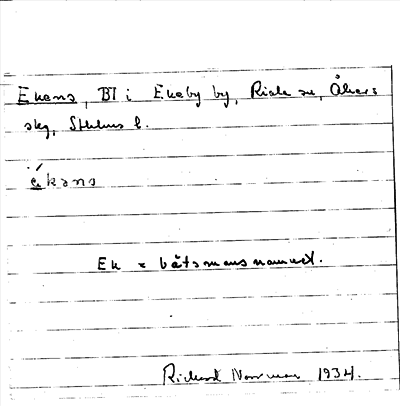 Ekens, BT i Ekeby by, Riala sn, Åkers
skg, Sthlms l.
ékəns
Ek = båtsmansnamnet.
Richard Norrman 1934.